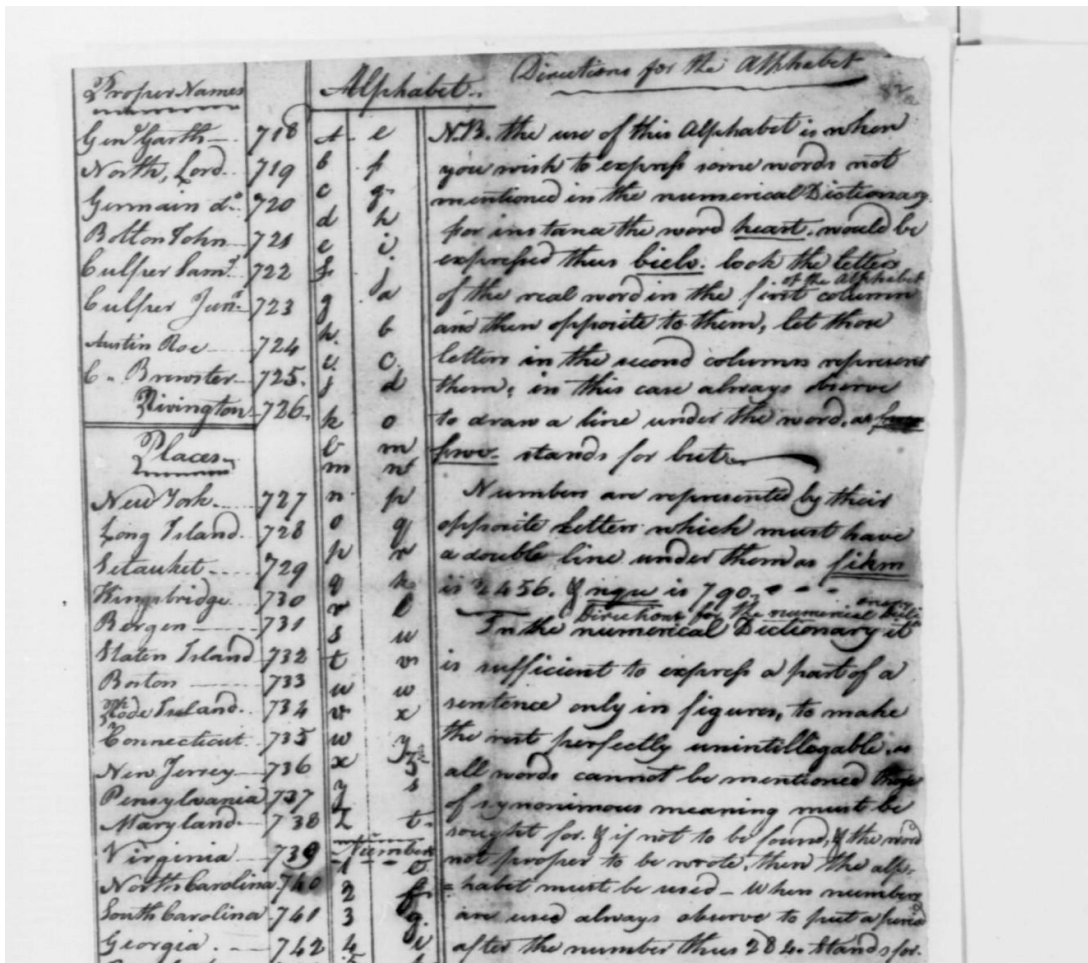 Proper Names
Genl Garth 718
North, Lord 719
Germain do. 720
Bolton John 721
Culper Saml. 722
Culper Junr. 723
Austin Roe 724
C. Brewster 725.
Rivington 726.
Places
New York 727
Long Island 728
Setauket 729
Kingsbridge 730
Bergen 731
Staten Island 732
Boston 733
Rhode Island 734
Connecticut 735
New Jersey 736
Pensylvania 737
Maryland 738
Virginia 739
North Carolina 740
South Carolina 741
Georgia 742
Alphabet
a e
b f
c g
d h
e i
f j
g a
h b
i c
j d
k o
l m
m n
n p
o q
p r
q k
r l
s u
t v
u w
v x
w y
x z
y s
z t
Numbers
1 e
2 f
3 g
4 i
Directions for the Alphabet
N.B. the use of this Alphabet is when
you wish to express some words not
mentioned in the numerical Dictionary
for instance the word heart. would be
expressed thus bielv. look the letters
of the real word in the first column of the Alphabet
and then opposite to them, let those
letters in the second columns represent
them; in this case always observe
to draw a line under the word, as
fwv. stands for but
Numbers are represented by their
opposite Letters which must have
a double line under them as fikm
is 2456. & nqu is 790.
Directions for the numerical
In the numerical Dictionary it
is sufficient to express a part of a
sentence only in figures, to make
the rest perfectly unintillegable, as
all words cannot be mentioned those
of synonimous meaning must be
sought for. & if not to be found, & the word
not proper to be wrote, then the alp-
=habet must be used - When numbers
are used always observe to put a period
after the number thus 284. stands for